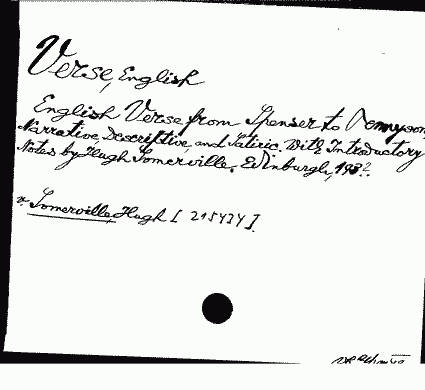 Verse, English
English Verse from Spenser to Tennyson,
Narrative, Descriptive, and Satiric. With Introductory
Notes by Hugh Somerville. Edinburgh, 193?.
v. Somerville, Hugh [ 215434 ].